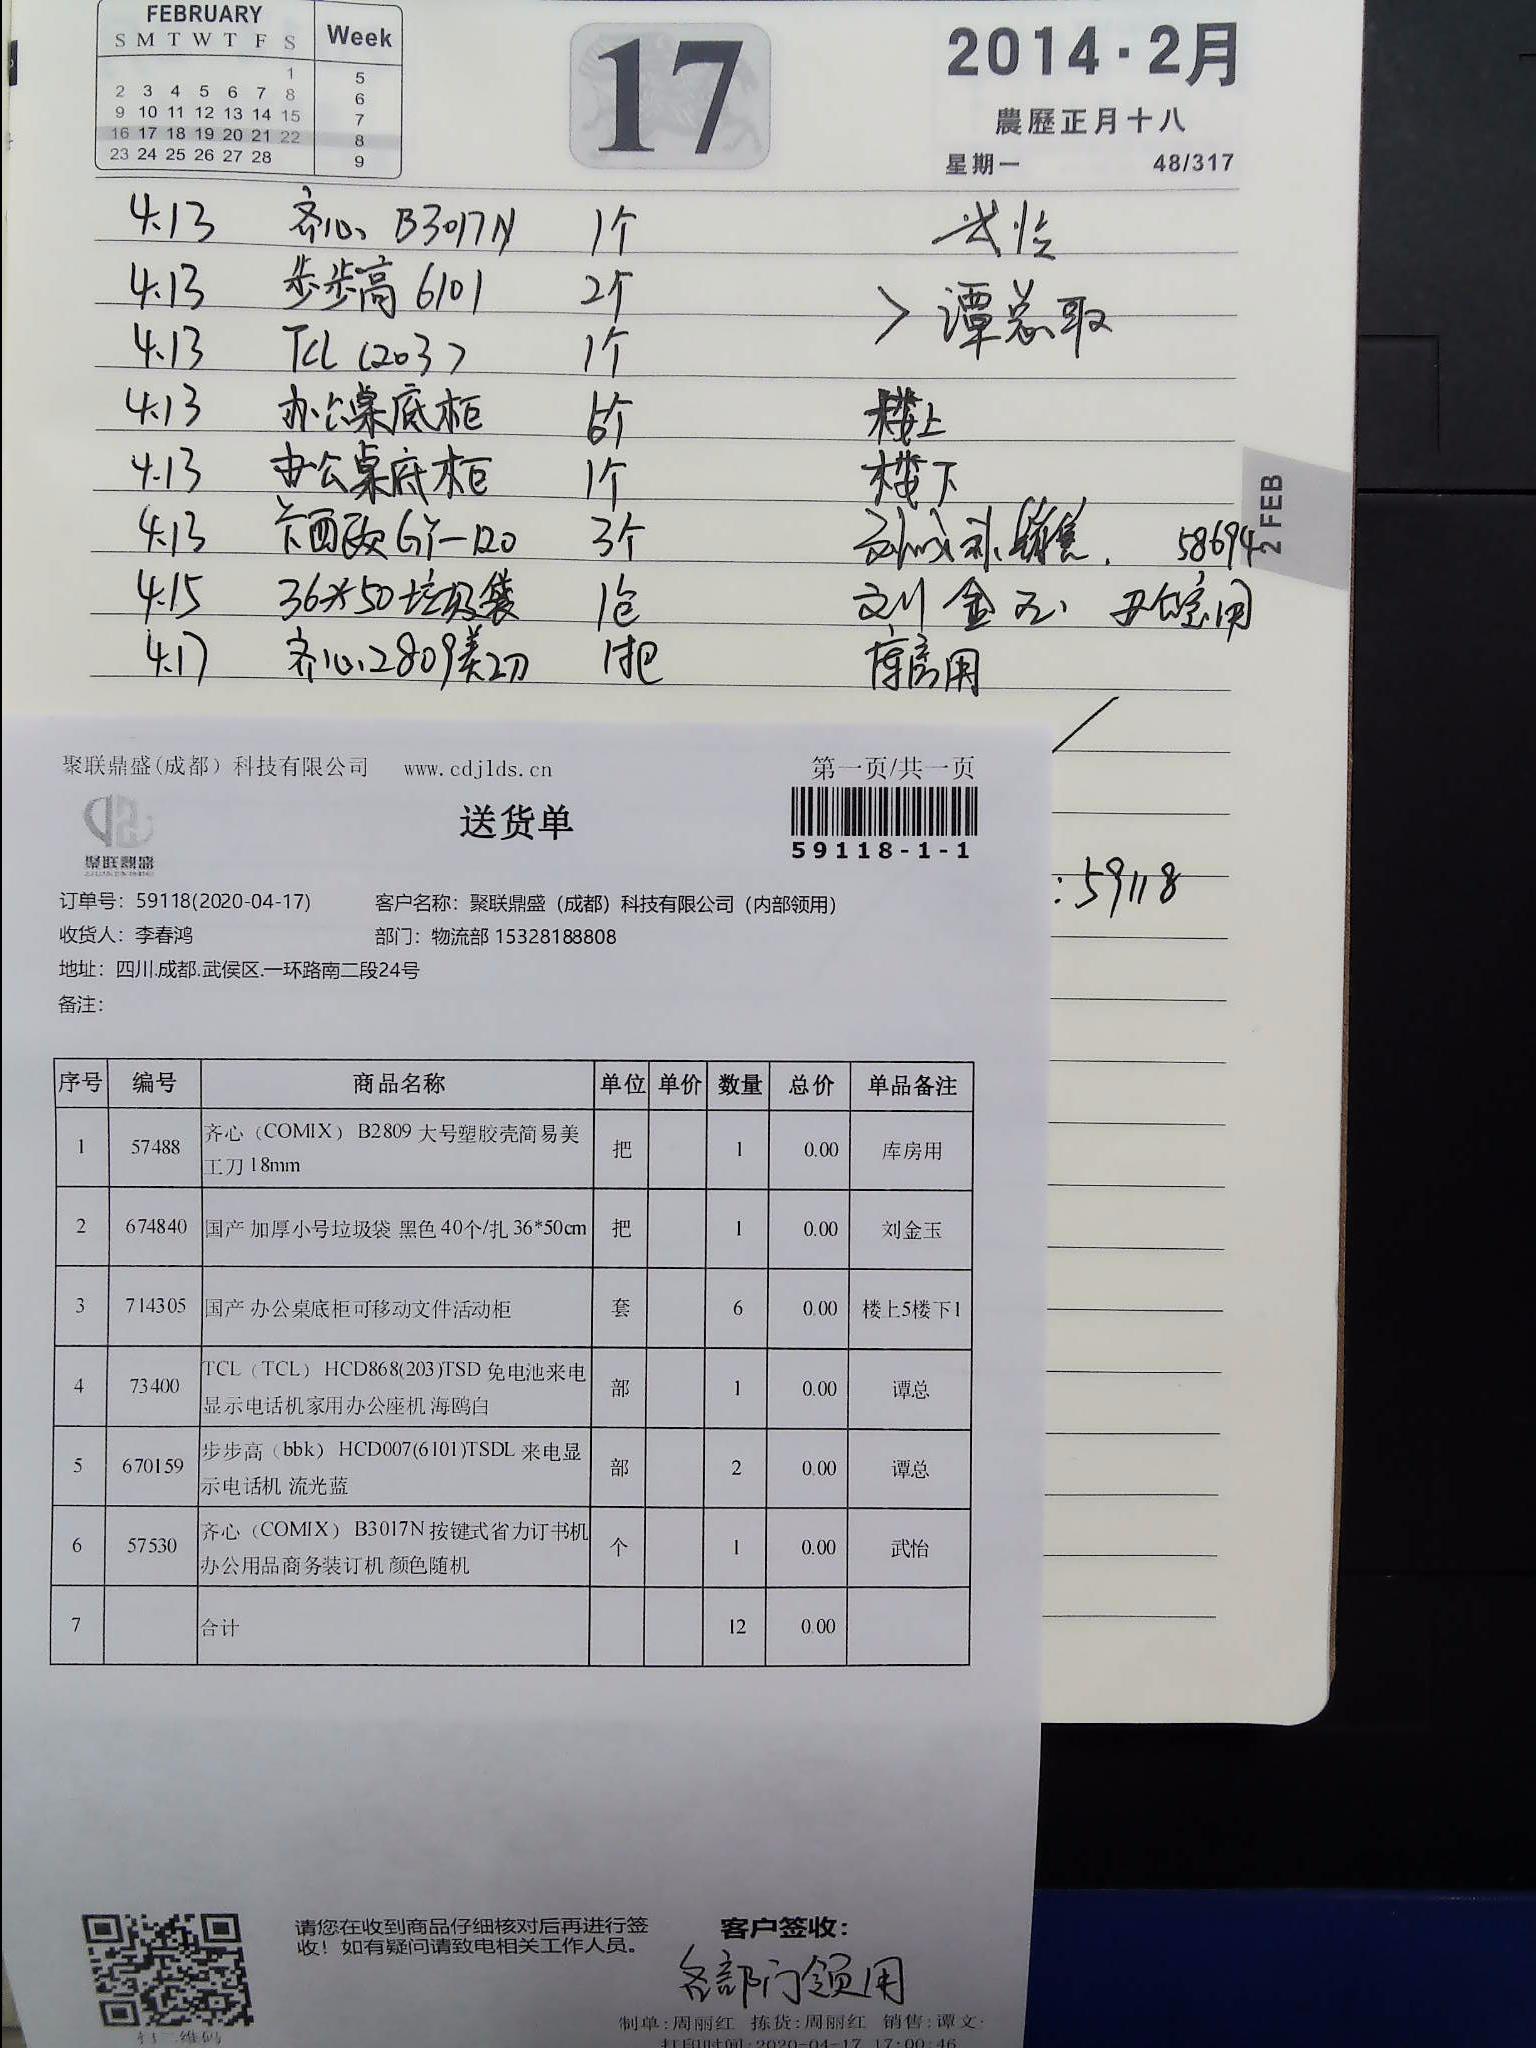 FEBRUARY Week
S M T W T F S
1 5
2 3 4 5 6 7 8 6
9 10 11 12 13 14 15 7
16 17 18 19 20 21 22 8
23 24 25 26 27 28 9
17
2014·2月
農歷正月十八
星期一 48/317
4.13 齐心 B3017N 1个 武怡
4.13 步步高 6101 2个
> 谭总取
4.13 TCL (203) 1个
4.13 办公桌底柜 6个 楼上
4.13 办公桌底柜 1个 楼下
4.13 卡西欧 GY-120 3个 销售. 58694
2 FEB
4.15 36*50垃圾袋 1包 刘金玉 办公室用
4.17 齐心2809美工刀 1把 库房用
聚联鼎盛(成都)科技有限公司 www.cdjlds.cn 第一页/共一页
送货单
聚联鼎盛
59118-1-1
:59118
订单号: 59118(2020-04-17) 客户名称: 聚联鼎盛(成都)科技有限公司(内部领用)
收货人: 李春鸿 部门: 物流部 15328188808
地址: 四川.成都.武侯区.一环路南二段24号
备注:
序号 编号 商品名称 单位 单价 数量 总价 单品备注
1 57488 齐心(COMIX) B2809 大号塑胶壳简易美 把 1 0.00 库房用
工刀 18mm
2 674840 国产 加厚小号垃圾袋 黑色 40个/扎 36*50cm 把 1 0.00 刘金玉
3 714305 国产 办公桌底柜可移动文件活动柜 套 6 0.00 楼上5楼下1
4 73400 TCL(TCL) HCD868(203)TSD 免电池来电 部 1 0.00 谭总
显示电话机家用办公座机 海鸥白
5 670159 步步高(bbk) HCD007(6101)TSDL 来电显 部 2 0.00 谭总
示电话机 流光蓝
6 57530 齐心(COMIX) B3017N 按键式省力订书机 个 1 0.00 武怡
办公用品商务装订机 颜色随机
7 合计 12 0.00
请您在收到商品仔细核对后再进行签
收! 如有疑问请致电相关工作人员。
客户签收:
各部门领用
扫二维码
制单:周丽红 拣货:周丽红 销售:谭文:
打印时间:2020-04-17 17:00:46